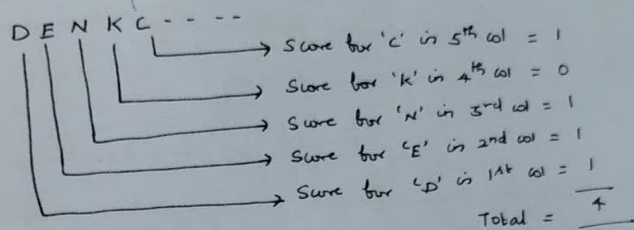 D E N K C - - - -
Score for 'C' in 5th col = 1
Score for 'K' in 4th col = 0
Score for 'N' in 3rd col = 1
Score for 'E' in 2nd col = 1
Score for 'D' in 1st col = 1
Total = 4